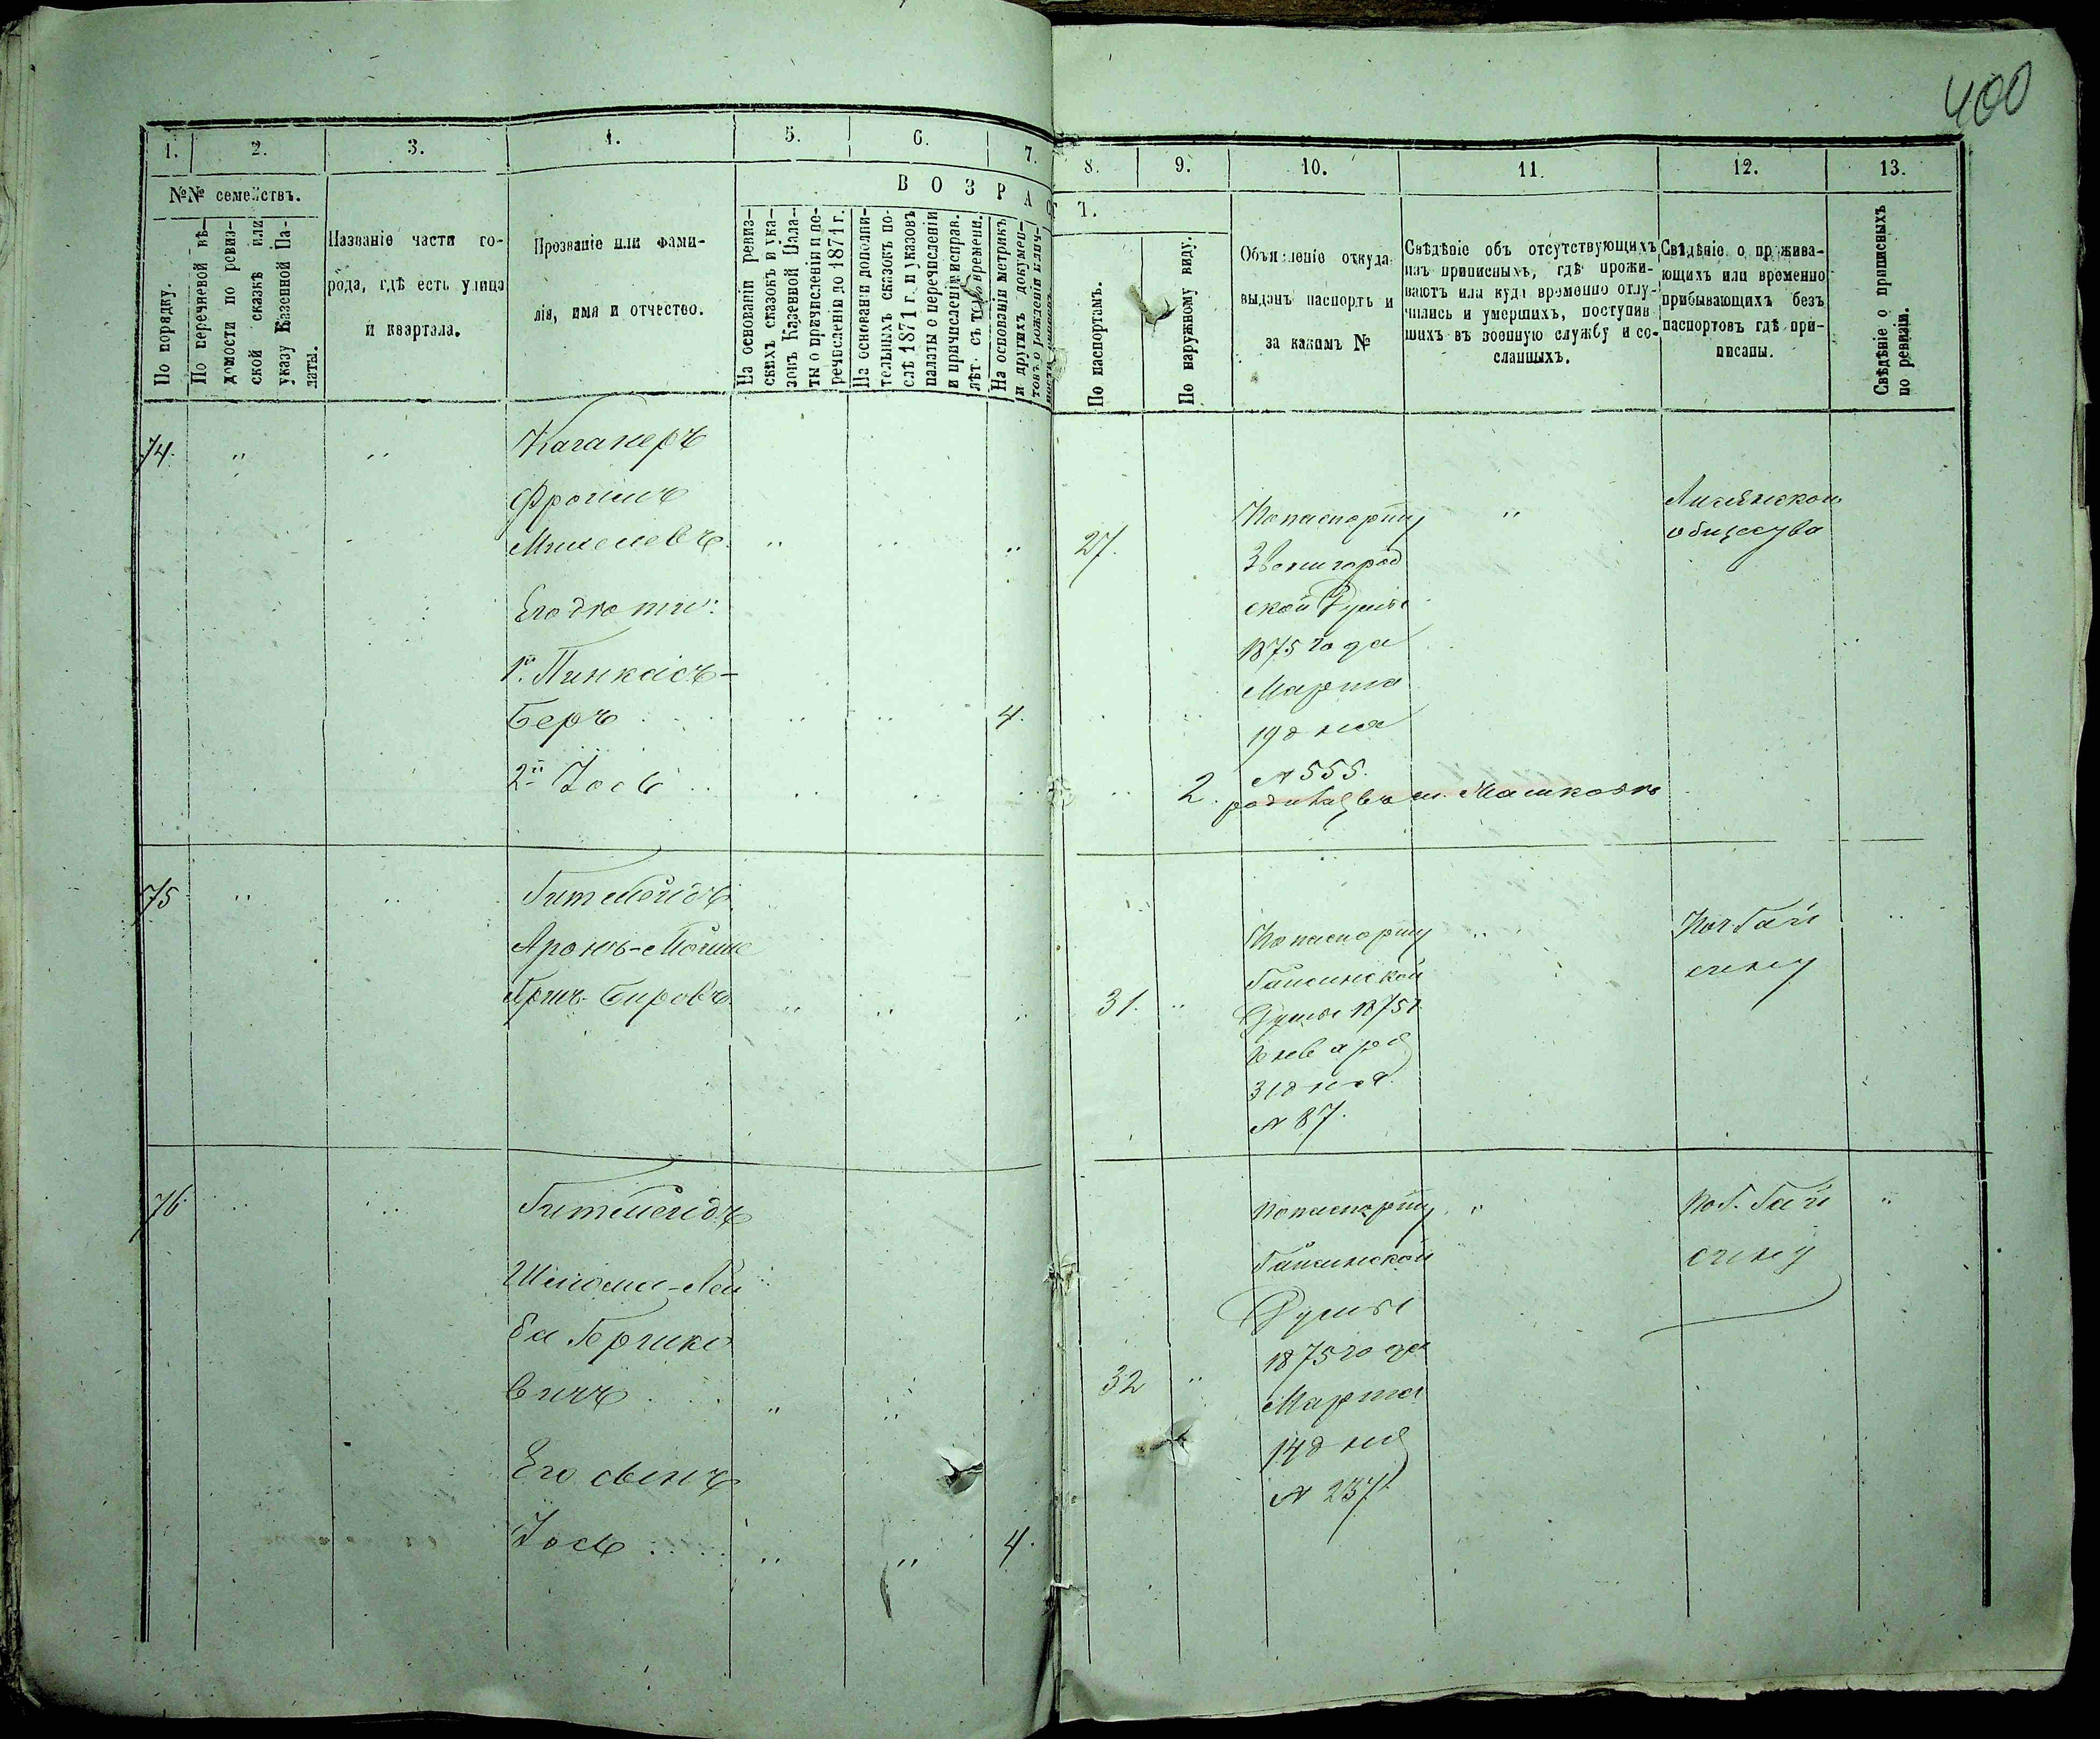 400
1. 2. 3. 4. 5. 6. 7. 8. 9. 10. 11. 12. 13.
№№ семействъ.
По порядку.
По перечневой вѣ-
домости по ревиз-
ской сказкѣ или
указу Казенной Па-
латы.
Названіе части го-
рода, гдѣ есть улица
и квартала.
Прозваніе или фами-
лія, имя и отчество.
ВОЗРАСТ.
На основаніи ревиз-
скихъ сказокъ и ука-
зовъ Казенной Пала-
ты о причисленіи и пе-
речисленіи до 1871 г.
На основаніи дополни-
тельныхъ сказокъ по-
слѣ 1871 г. и указовъ
палаты о перечисленіи
и причисленіи исправ.
лѣт. съ того времени.
На основаніи метрикъ
и другихъ докумен-
товъ о рожденіи
По паспортамъ.
По наружному виду.
Объявленіе откуда
выданъ паспортъ и
за какимъ №
Свѣдѣніе объ отсутствующихъ
изъ приписныхъ, гдѣ прожи-
ваютъ или куда временно отлу-
чились и умершихъ, поступив
шихъ въ военную службу и со-
сланныхъ.
Свѣдѣніе о прожива-
ющихъ или временно
прибывающихъ безъ
паспортовъ гдѣ при-
писаны.
Свѣдѣніе о приписныхъ
по ревизіи.
74. " " Каганеръ
Фроимъ
Мошелевъ " " " 27.
Его дѣти:
1й Пинкасъ-
Беръ 4.
2й Іось 2.
По паспорту
Звенигород
ской Думы
1875 года
Марта
19 дня
№ 555.
"
Лисянском
общества
75 " " Гитмейдъ
Аронъ-Мошко
31. "
По паспорту
Гайсинской
Думы 1875 г.
Января
31 дня
№ 87.
Гай
сину
76 " " Гитмейдъ
Шлиома-Лей
ба Гершко
вичъ " " 32 "
Его сынъ
Іось " " 4.
По паспорту
Гайсинской
Думы
1875 года
Марта
14 дня
№ 237
"
по г. Гай
сину
"